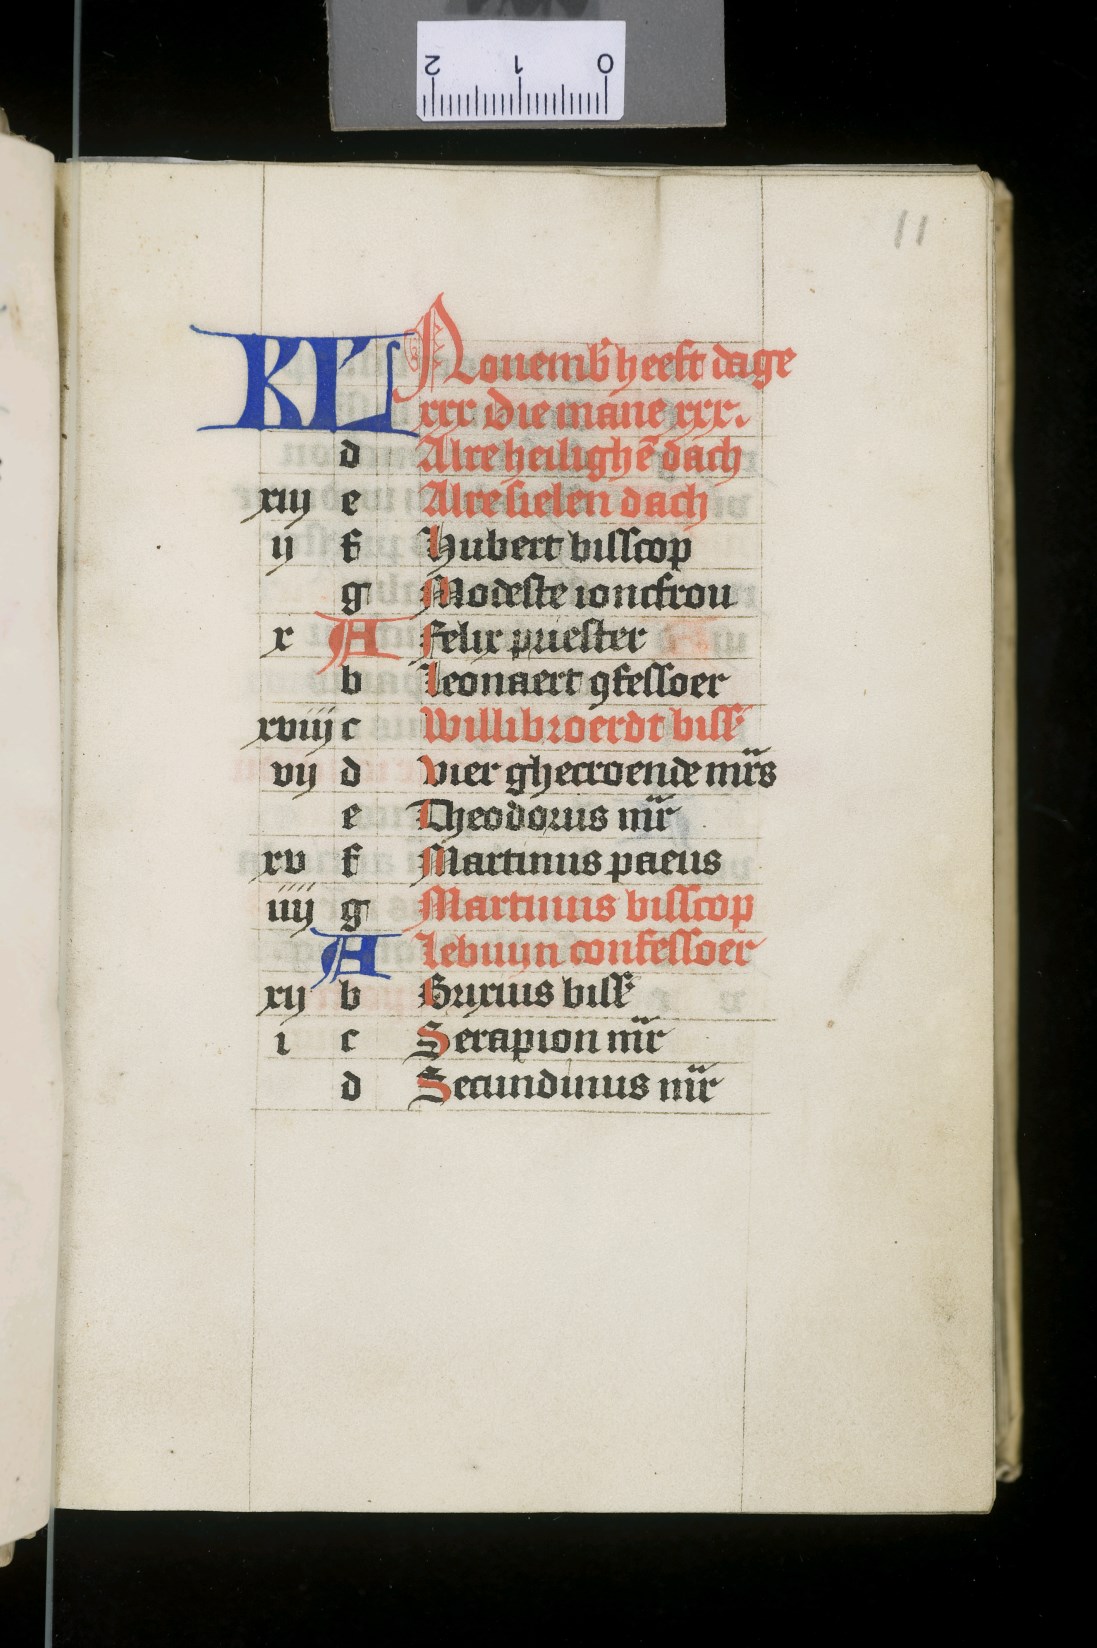 2 1 0
11
KL Nouemb heeft dage
xxx Die mane xxx.
d Alre heilighē dach
xiij e Alre sielen dach
ij f Hubert bisscop
g Modeste ioncfrou
x A Felix priester
b Leonaert ꝯfessoer
xviij c Willibroerdt biss
vij d Vier ghecroende mrs
e Theodorus mr
xv f Martinus paeus
iiij g Martinus bisscop
A Lebuyn confessoer
xij b Brixius biss
i c Serapion mr
d Secundinus mr